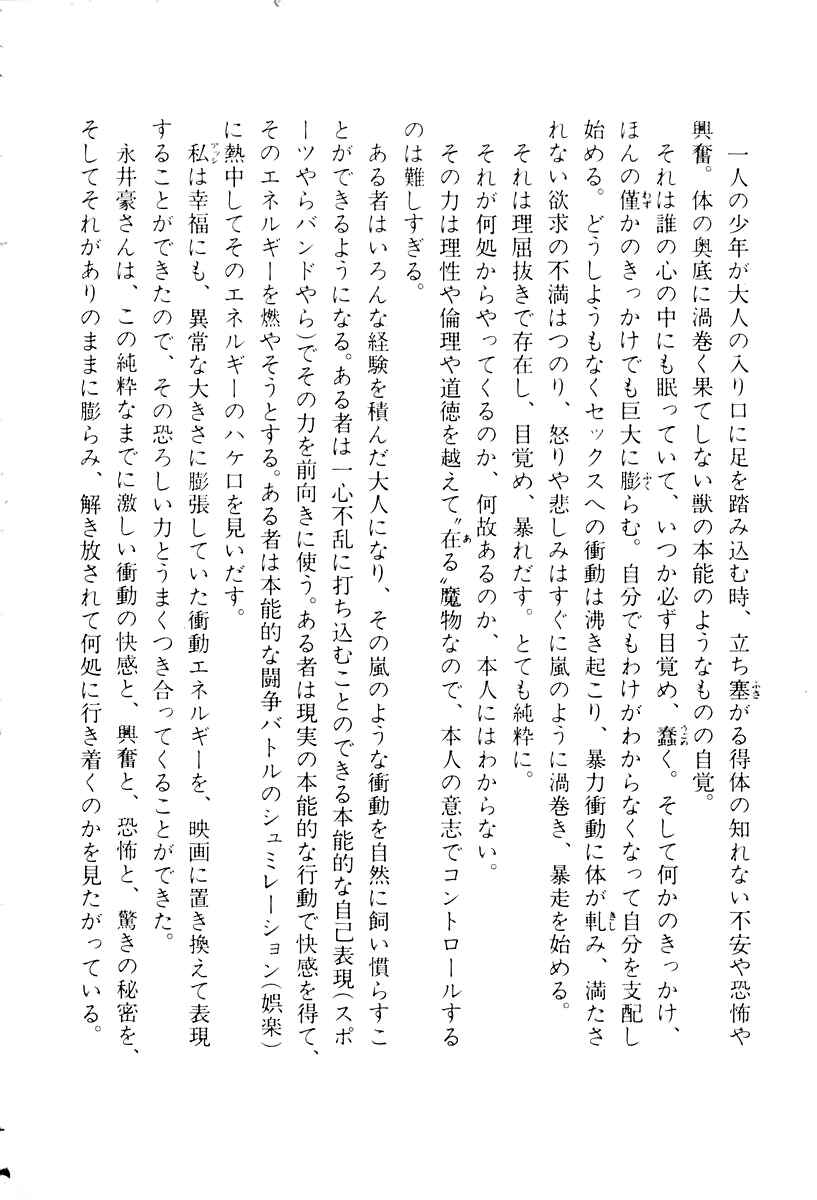 一人の少年が大人の入り口に足を踏み込む時、立ち塞がる得体の知れない不安や恐怖や
興奮。体の奥底に渦巻く果てしない獣の本能のようなものの自覚。
それは誰の心の中にも眠っていて、いつか必ず目覚め、蠢く。そして何かのきっかけ、
ほんの僅かのきっかけでも巨大に膨らむ。自分でもわけがわからなくなって自分を支配し
始める。どうしようもなくセックスへの衝動は沸き起こり、暴力衝動に体が軋み、満たさ
れない欲求の不満はつのり、怒りや悲しみはすぐに嵐のように渦巻き、暴走を始める。
それは理屈抜きで存在し、目覚め、暴れだす。とても純粋に。
それが何処からやってくるのか、何故あるのか、本人にはわからない。
その力は理性や倫理や道徳を越えて〝在る〟魔物なので、本人の意志でコントロールする
のは難しすぎる。
ある者はいろんな経験を積んだ大人になり、その嵐のような衝動を自然に飼い慣らすこ
とができるようになる。ある者は一心不乱に打ち込むことのできる本能的な自己表現(スポ
ーツやらバンドやら)でその力を前向きに使う。ある者は現実の本能的な行動で快感を得て、
そのエネルギーを燃やそうとする。ある者は本能的な闘争バトルのシュミレーション(娯楽)
に熱中してそのエネルギーのハケ口を見いだす。
私は幸福にも、異常な大きさに膨張していた衝動エネルギーを、映画に置き換えて表現
することができたので、その恐ろしい力とうまくつき合ってくることができた。
永井豪さんは、この純粋なまでに激しい衝動の快感と、興奮と、恐怖と、驚きの秘密を、
そしてそれがありのままに膨らみ、解き放されて何処に行き着くのかを見たがっている。